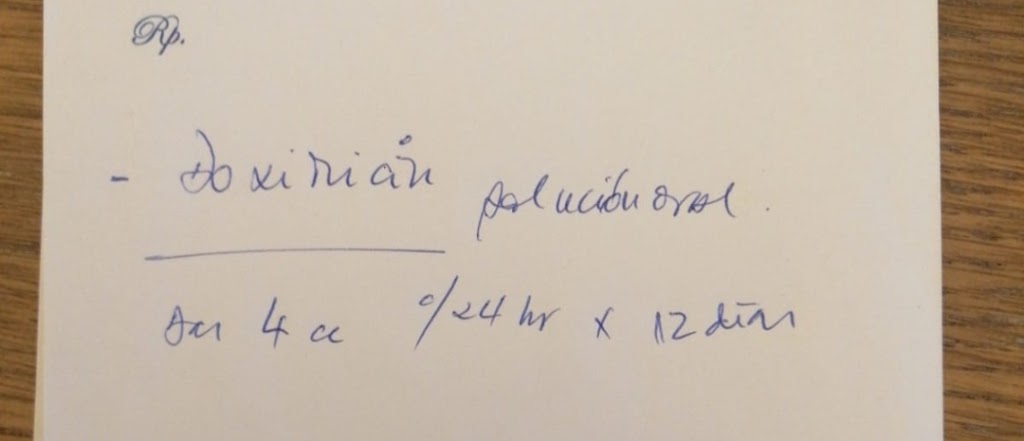 Rp.
- Doxinián solución oral.
Dar 4 cc c/24 hr x 12 días